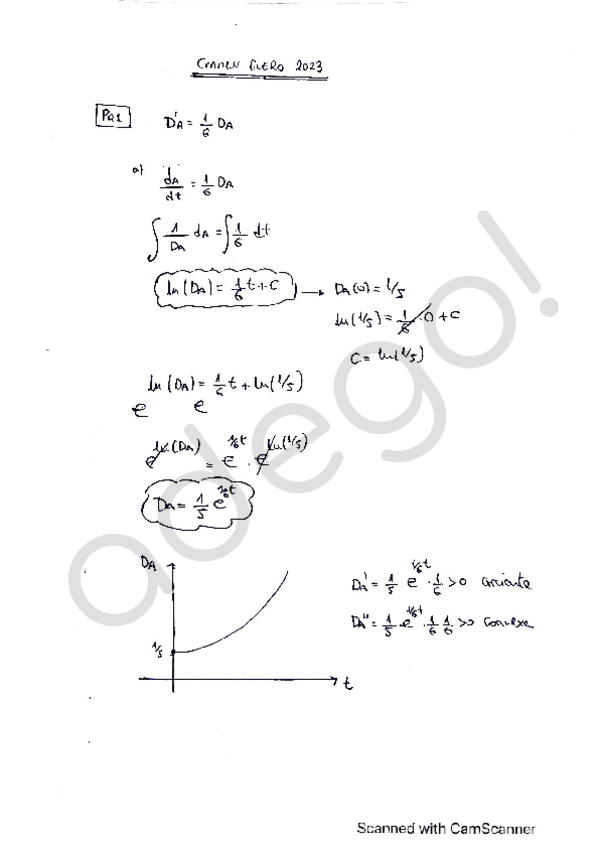 EXAMEN ENERO 2023
PR1 D'A = 1/6 DA
a) dA/dt = 1/6 DA
∫ 1/DA dA = ∫ 1/6 dt
ln(DA) = 1/6 t + C → DA(0) = 1/5
ln(1/5) = 1/6 · 0 + C
C = ln(1/5)
ln(DA) = 1/6 t + ln(1/5)
e e
e^ln(DA) = e^1/6t · e^ln(1/5)
DA = 1/5 e^1/6t
DA
1/5
t
DA' = 1/5 e^1/6t · 1/6 > 0 creciente
DA'' = 1/5 e^1/6t · 1/6 1/6 > 0 convexa
adego!
Scanned with CamScanner